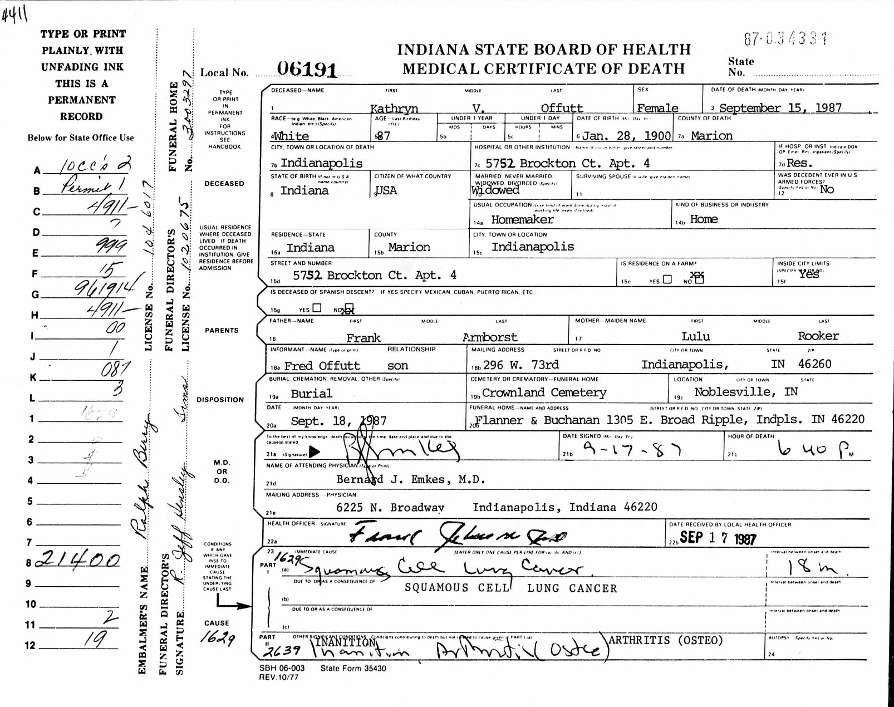 4411
TYPE OR PRINT
PLAINLY WITH
UNFADING INK
THIS IS A
PERMANENT
RECORD
Below for State Office Use
87-034331
INDIANA STATE BOARD OF HEALTH
MEDICAL CERTIFICATE OF DEATH
Local No. 06191
State No.
TYPE OR PRINT IN PERMANENT INK FOR INSTRUCTIONS SEE HANDBOOK
DECEASED—NAME FIRST MIDDLE LAST SEX DATE OF DEATH (MONTH, DAY, YEAR)
1 Kathryn V. Offutt Female 3 September 15, 1987
RACE AGE UNDER 1 YEAR UNDER 1 DAY DATE OF BIRTH COUNTY OF DEATH
MOS DAYS HOURS MINS
4 White 5a 87 5b 5c 6 Jan. 28, 1900 7a Marion
CITY, TOWN OR LOCATION OF DEATH HOSPITAL OR OTHER INSTITUTION IF HOSP. OR INST.
7b Indianapolis 7c 5752 Brockton Ct. Apt. 4 7d Res.
DECEASED
STATE OF BIRTH CITIZEN OF WHAT COUNTRY MARRIED, NEVER MARRIED, WIDOWED, DIVORCED SURVIVING SPOUSE WAS DECEDENT EVER IN U.S. ARMED FORCES?
8 Indiana USA Widowed 11 12 No
USUAL OCCUPATION KIND OF BUSINESS OR INDUSTRY
14a Homemaker 14b Home
USUAL RESIDENCE WHERE DECEASED LIVED. IF DEATH OCCURRED IN INSTITUTION, GIVE RESIDENCE BEFORE ADMISSION
RESIDENCE—STATE COUNTY CITY, TOWN OR LOCATION
15a Indiana 15b Marion 15c Indianapolis
STREET AND NUMBER IS RESIDENCE ON A FARM? INSIDE CITY LIMITS
15d 5752 Brockton Ct. Apt. 4 15e YES NO 15f Yes
IS DECEASED OF SPANISH DESCENT? IF YES SPECIFY MEXICAN, CUBAN, PUERTO RICAN, ETC.
15g YES NO
PARENTS
FATHER—NAME FIRST MIDDLE LAST MOTHER—MAIDEN NAME FIRST MIDDLE LAST
16 Frank Armborst 17 Lulu Rooker
INFORMANT—NAME RELATIONSHIP MAILING ADDRESS STREET OR R.F.D. NO. CITY OR TOWN STATE ZIP
18a Fred Offutt son 18b 296 W. 73rd Indianapolis, IN 46260
DISPOSITION
BURIAL, CREMATION, REMOVAL, OTHER CEMETERY OR CREMATORY—FUNERAL HOME LOCATION CITY OR TOWN STATE
19a Burial 19b Crownland Cemetery 19c Noblesville, IN
DATE (MONTH, DAY, YEAR) FUNERAL HOME—NAME AND ADDRESS
20a Sept. 18, 1987 20b Flanner & Buchanan 1305 E. Broad Ripple, Indpls. IN 46220
DATE SIGNED HOUR OF DEATH
21a 21b 9-17-87 21c 6 40 P M
M.D. OR D.O.
NAME OF ATTENDING PHYSICIAN
21d Bernard J. Emkes, M.D.
MAILING ADDRESS—PHYSICIAN
21e 6225 N. Broadway Indianapolis, Indiana 46220
HEALTH OFFICER—SIGNATURE DATE RECEIVED BY LOCAL HEALTH OFFICER
22a 22b SEP 17 1987
CONDITIONS IF ANY WHICH GAVE RISE TO IMMEDIATE CAUSE STATING THE UNDERLYING CAUSE LAST
23 IMMEDIATE CAUSE (ENTER ONLY ONE CAUSE PER LINE FOR (a), (b), AND (c)) Interval between onset and death
PART I 1629 (a) Squamous Cell Lung Cancer 18 m
DUE TO OR AS A CONSEQUENCE OF Interval between onset and death
SQUAMOUS CELL LUNG CANCER
(b)
DUE TO OR AS A CONSEQUENCE OF Interval between onset and death
(c)
CAUSE
1629
PART II OTHER SIGNIFICANT CONDITIONS AUTOPSY
INANITION ARTHRITIS (OSTEO)
2639 Inanition Arthritis Osteo 24
SBH 06-003 State Form 35430
REV. 10/77
A 1occ's 2
B Permit 1
C 4911-
D 7
E 999
F 15
G 961914
H 4911-
I 00
J 1
K 087
L 3
1
2
3
4
5
6
7
8 21400
9
10
11 2
12 19
EMBALMER'S NAME Ralph Berry LICENSE No. 1046017
FUNERAL DIRECTOR'S SIGNATURE FUNERAL DIRECTOR'S LICENSE No. 1020675
FUNERAL HOME No. 3003297